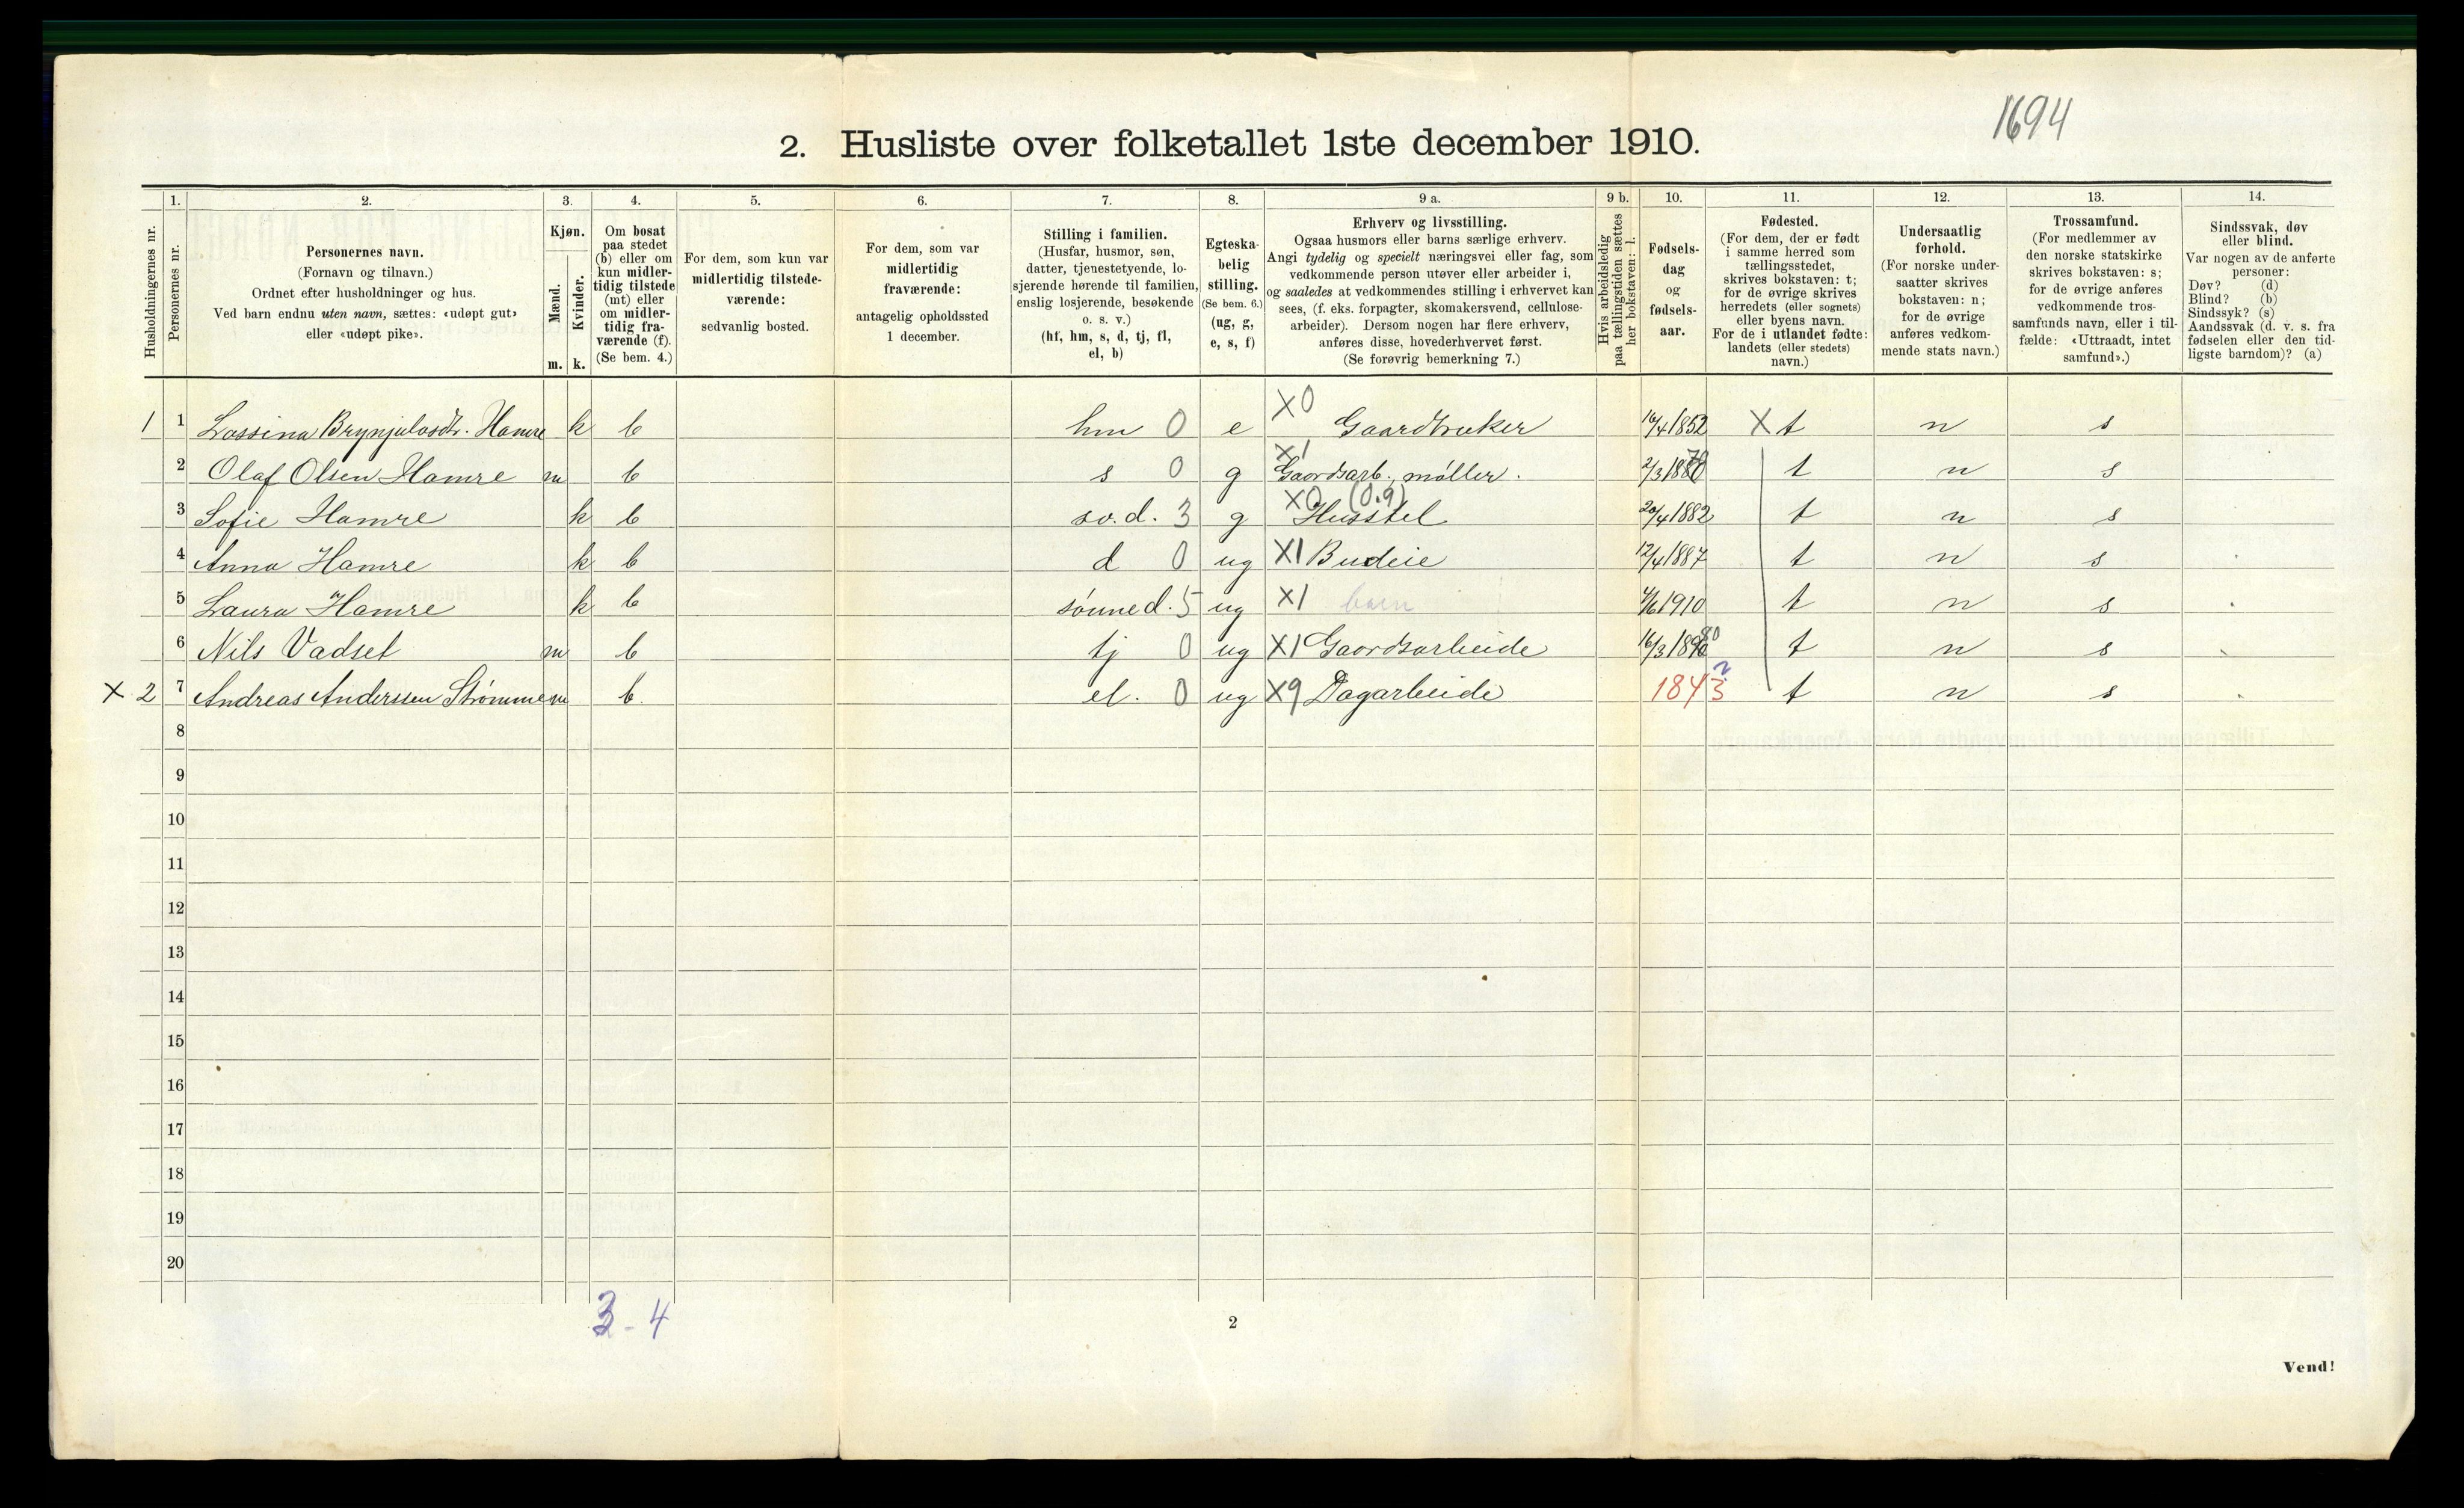 1694
2. Husliste over folketallet 1ste december 1910.
Husholdningernes nr.
1.
Personernes nr.
2.
Personernes navn.
(Fornavn og tilnavn.)
Ordnet efter husholdninger og hus.
Ved barn endnu uten navn, sættes: «udøpt gut»
eller «udøpt pike».
3.
Kjøn.
Mænd.
Kvinder.
m. k.
4.
Om bosat
paa stedet
(b) eller om
kun midler-
tidig tilstede
(mt) eller
om midler-
tidig fra-
værende (f).
(Se bem. 4.)
5.
For dem, som kun var
midlertidig tilstede-
værende:
sedvanlig bosted.
6.
For dem, som var
midlertidig
fraværende:
antagelig opholdssted
1 december.
7.
Stilling i familien.
(Husfar, husmor, søn,
datter, tjenestetyende, lo-
sjerende hørende til familien,
enslig losjerende, besøkende
o. s. v.)
(hf, hm, s, d, tj, fl,
el, b)
8.
Egteska-
belig
stilling.
(Se bem. 6.)
(ug, g,
e, s, f)
9 a.
Erhverv og livsstilling.
Ogsaa husmors eller barns særlige erhverv.
Angi tydelig og specielt næringsvei eller fag, som
vedkommende person utøver eller arbeider i,
og saaledes at vedkommendes stilling i erhvervet kan
sees, (f. eks. forpagter, skomakersvend, cellulose-
arbeider). Dersom nogen har flere erhverv,
anføres disse, hovederhvervet først.
(Se forøvrig bemerkning 7.)
9 b.
Hvis arbeidsledig
paa tællingstiden sættes
her bokstaven: l.
10.
Fødsels-
dag
og
fødsels-
aar.
11.
Fødested.
(For dem, der er født
i samme herred som
tællingsstedet,
skrives bokstaven: t;
for de øvrige skrives
herredets (eller sognets)
eller byens navn.
For de i utlandet fødte:
landets (eller stedets)
navn.)
12.
Undersaatlig
forhold.
(For norske under-
saatter skrives
bokstaven: n;
for de øvrige
anføres vedkom-
mende stats navn.)
13.
Trossamfund.
(For medlemmer av
den norske statskirke
skrives bokstaven: s;
for de øvrige anføres
vedkommende tros-
samfunds navn, eller i til-
fælde: «Uttraadt, intet
samfund».)
14.
Sindssvak, døv
eller blind.
Var nogen av de anførte
personer:
Døv? (d)
Blind? (b)
Sindssyk? (s)
Aandssvak (d. v. s. fra
fødselen eller den tid-
ligste barndom)? (a)
1 1 Lassina Brynjulosdtr. Hamre k b hm 0 e X0 Gaardbruker 16/4 1852 X t n s
2 Olaf Olsen Hamre m b s 0 g X1 Gaardsarb., møller. 2/3 1880 79 t n s
3 Sofie Hamre k b sv. d. 3 g X0 (0.9) Husstel 20/4 1882 t n s
4 Anna Hamre k b d 0 ug X1 Budeie 12/4 1887 t n s
5 Laura Hamre k b sønned. 5 ug X1 barn 4/6 1910 t n s
6 Nils Vadset m b tj 0 ug X1 Gaardsarbeide 16/3 1890 80 t n s
X 2 7 Andreas Anderssen Strømme m b. el. 0 ug X9 Dagarbeide 1843 2 t n s
8
9
10
11
12
13
14
15
16
17
18
19
20
3 - 4
2
Vend!